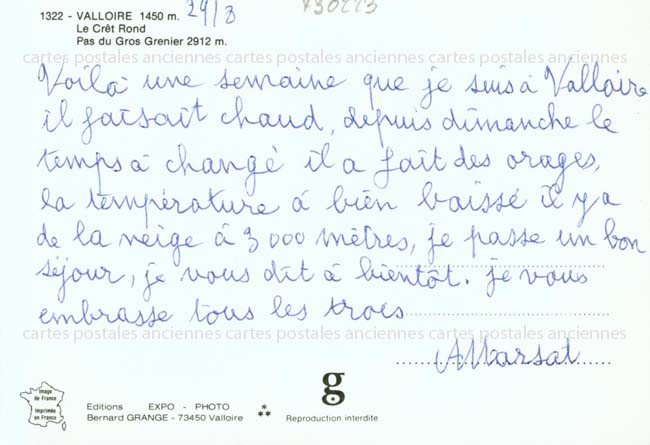 1322 - VALLOIRE 1450 m. 29/8 730223
Le Crêt Rond
Pas du Gros Grenier 2912 m.
cartes postales anciennes cartes postales anciennes cartes postales anciennes
Voilà une semaine que je suis à Valloire
il faisait chaud, depuis dimanche le
temps à changé il a fait des orages,
la température á bien baissé il y a
de la neige á 3 000 mètres, je passe un bon
séjour, je vous dit á bientôt. je vous
embrasse tous les trois
cartes postales anciennes cartes postales anciennes cartes postales anciennes
A Marsat
Image
de France
Imprimée
en France
Editions EXPO - PHOTO
Bernard GRANGE - 73450 Valloire
*
**
g
Reproduction interdite